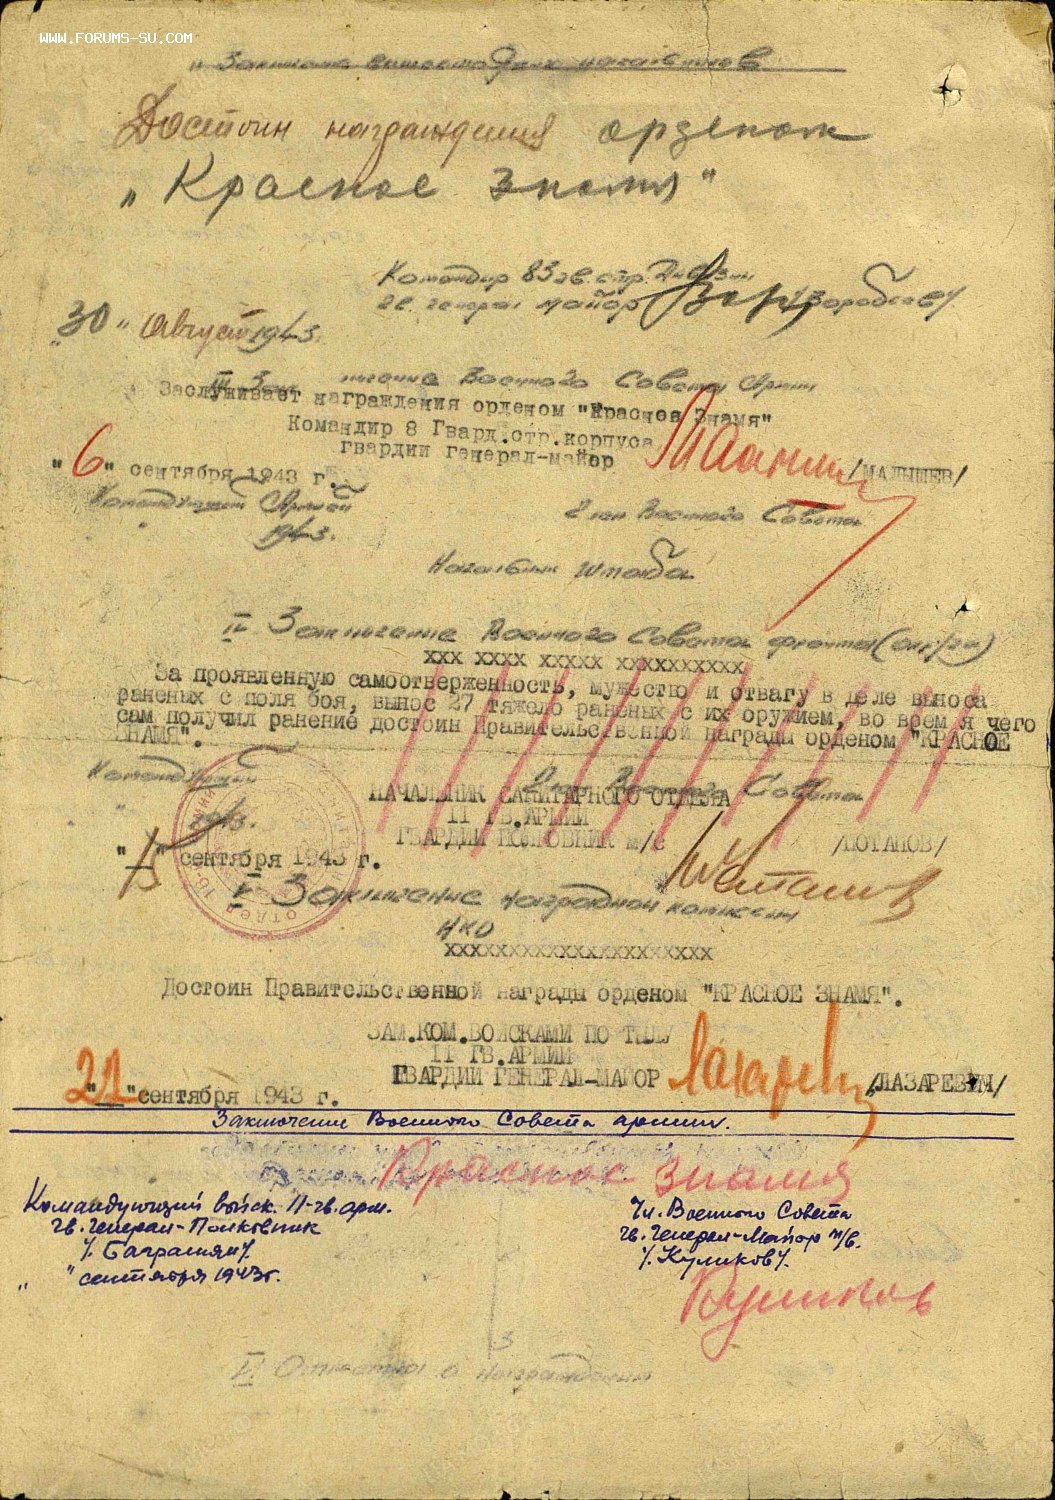 WWW.FORUMS-SU.COM
" Заключение вышестоящих начальников
Достоин награждения орденом
"Красное Знамя"
Командир 83 гв. стр. дивизии
гв. генерал майор /Воробьев/
"30" Август 1943.
III Зак лючение Военного Совета Армии
Заслуживает награждения орденом "Красное Знамя"
Командир 8 Гвард.стр.корпуса
гвардии генерал-майор /МАЛЫШЕВ/
"6" сентября 1943 г.
Командующий Армией Член Военного Совета
1943.
Начальник Штаба
IV Заключение Военного Совета фронта (округа)
ХХХ ХХХХ ХХХХХ ХХХХХХХХХХ
За проявленную самоотверженность, мужество и отвагу в деле выноса
раненых с поля боя, вынос 27 тяжело раненых с их оружием, во врем я чего
сам получил ранение достоин Правительственной награды орденом "КРАСНОЕ
ЗНАМЯ".
Командующий Член Военного Совета
1943.
НАЧАЛЬНИК САНИТАРНОГО ОТДЕЛА
II ГВ.АРМИИ
ГВАРДИИ ПОЛКОВНИК м/с /ПОТАПОВ/
сентября 1943 г.
V Заключение наградной комиссии
НКО
ХХХХХХХХХХХХХХХХХХХХХ
Достоин Правительственной награды орденом "КРАСНОЕ ЗНАМЯ".
ЗАМ.КОМ.ВОЙСКАМИ ПО ТЫЛУ
II ГВ.АРМИИ
ГВАРДИИ ГЕНЕРАЛ-МАЙОР /ЛАЗАРЕВИЧ/
"21" сентября 1943 г.
Заключение Военного Совета армии.
Красное Знамя
Командующий войск. 11-гв. арм.
гв. Генерал-Полковник
/Баграмян/.
" " сентября 1943г.
Чл. Военного Совета
гв. Генерал-Майор т/в.
/Куликов/.
Куликов
VI Отметка о награждении